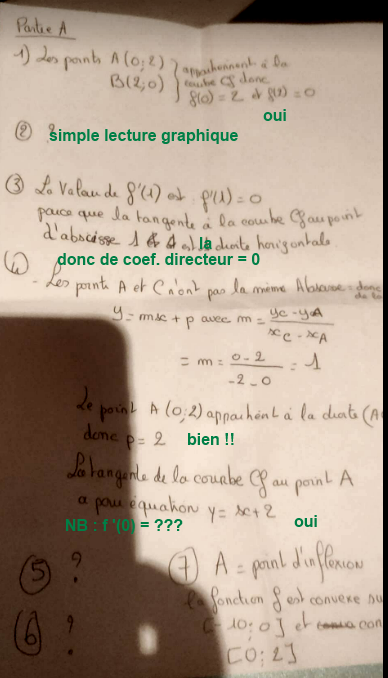 Partie A
1) Les points A(0;2) } appartiennent à la
B(2;0) } courbe Cf donc
f(0) = 2 et f(2) = 0
oui
② simple lecture graphique
③ La valeur de f'(1) est f'(1) = 0
parce que la tangente à la courbe Cf au point
d'abscisse 1 est la droite horizontale.
donc de coef. directeur = 0
④
- Les points A et C n'ont pas la même Abscisse donc
y = mx + p avec m = yC - yA / xC - xA
= m = 0 - 2 / -2 - 0 = 1
Le point A (0;2) appartient à la droite (A
donc p = 2 bien !!
La tangente de la courbe Cf au point A
a pour équation y = x + 2
NB : f '(0) = ??? oui
⑤ ?
⑥ ?
⑦ A = point d'inflexion
la fonction f est convexe su
[-10;0] et con
[0;2]